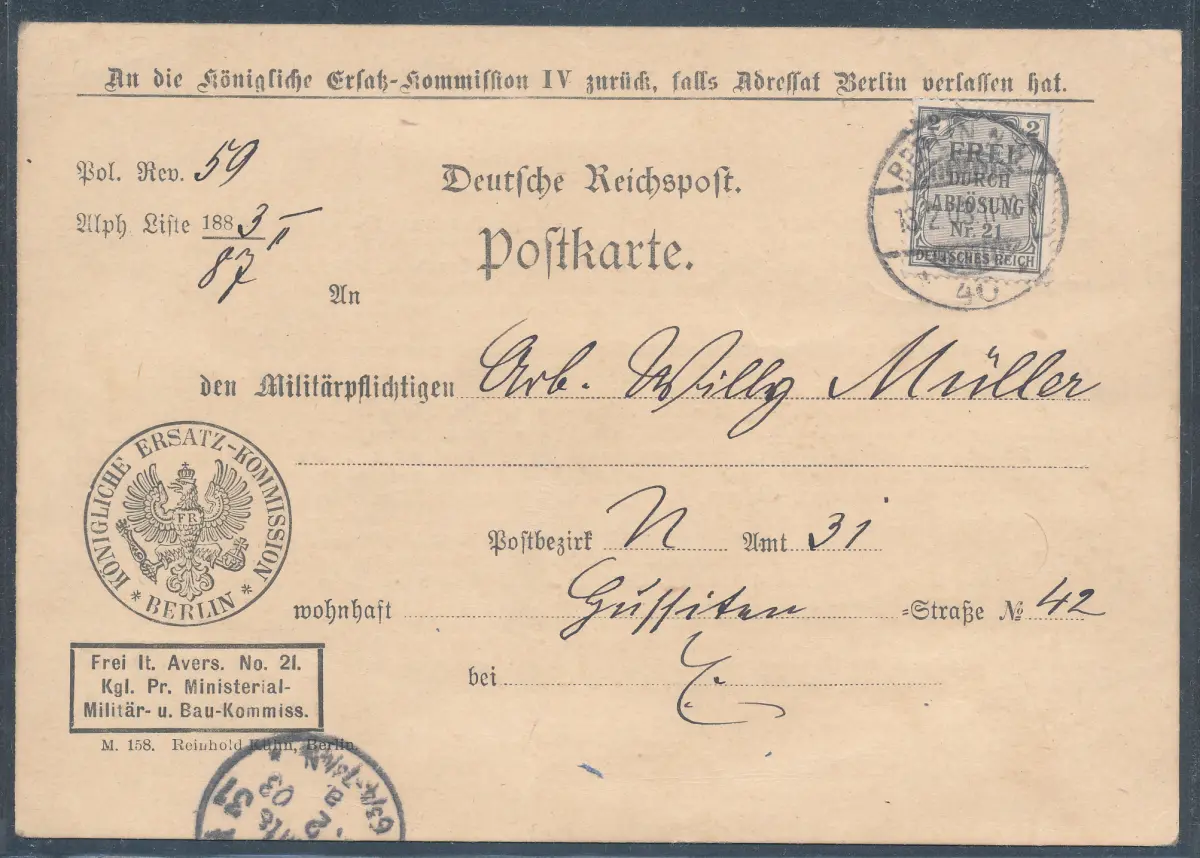 An die Königliche Ersatz-Kommission IV zurück, falls Adressat Berlin verlassen hat.
Pol. Rev. 59
Alph Liste 1883
87
Deutsche Reichspost.
Postkarte.
2 2
FREI
DURCH
ABLÖSUNG
Nr. 21
DEUTSCHES REICH
BERLIN
40
An
den Militärpflichtigen Arb. Willy Müller
KÖNIGLICHE ERSATZ-KOMMISSION
* BERLIN *
FR
Postbezirk N Amt 31
wohnhaft Hussiten =Straße № 42
bei E.
Frei lt. Avers. No. 21.
Kgl. Pr. Ministerial-
Militär- u. Bau-Kommiss.
M. 158. Reinhold Kühn, Berlin.
31
03